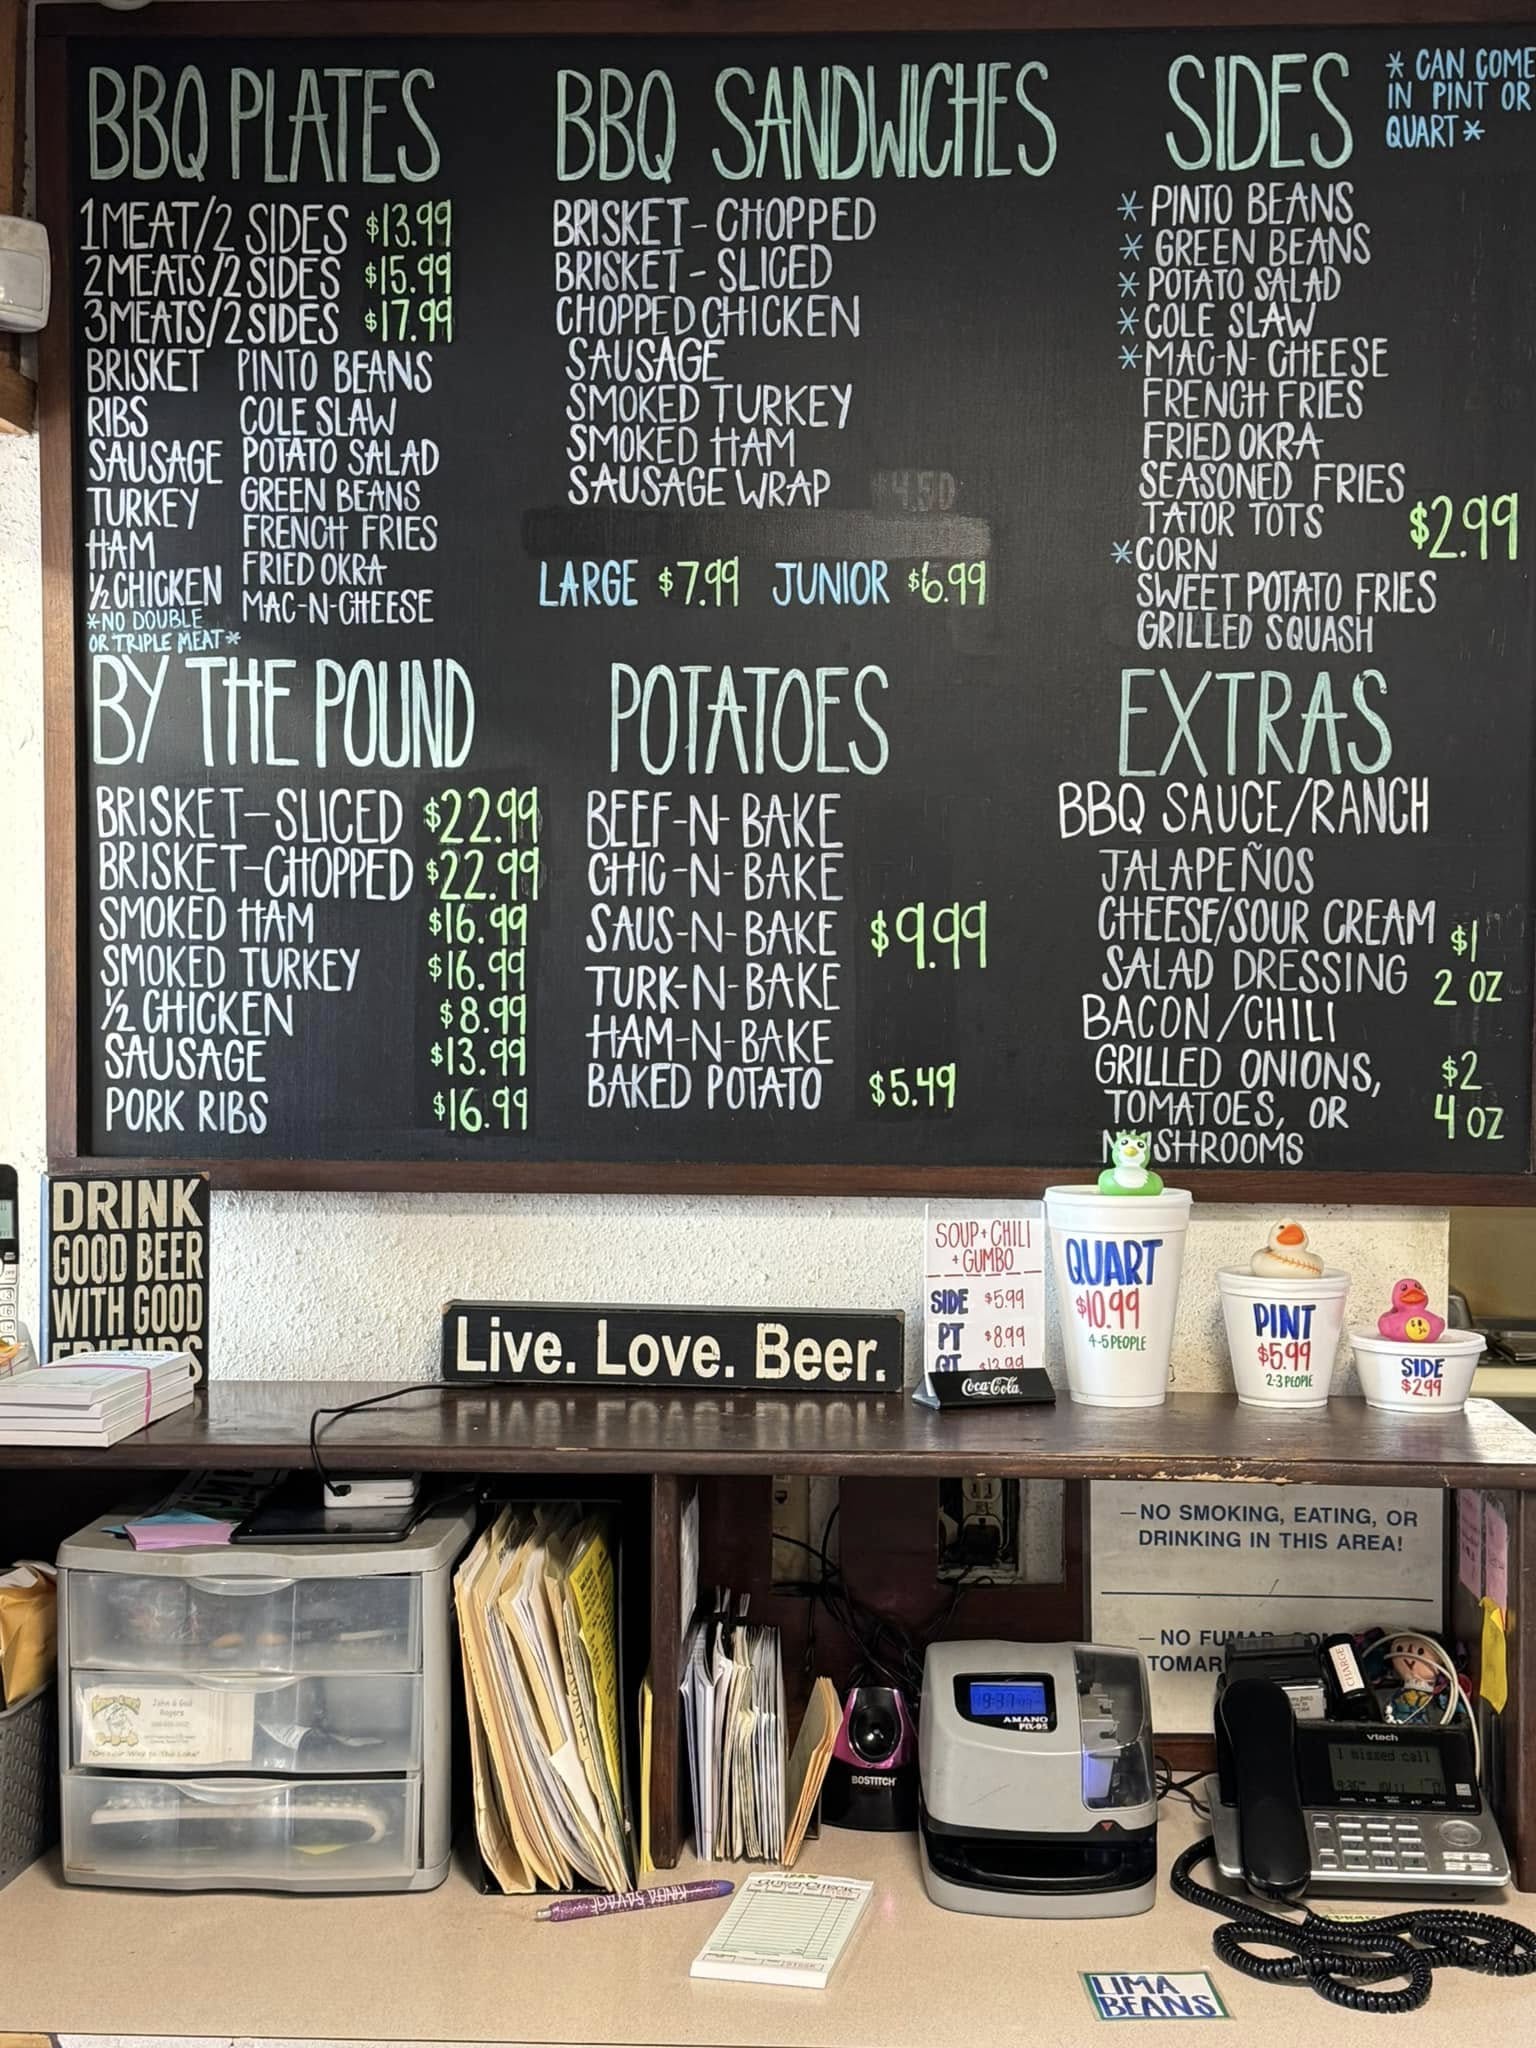 BBQ PLATES
1 MEAT/2 SIDES $13.99
2 MEATS/2 SIDES $15.99
3 MEATS/2 SIDES $17.99
BRISKET
RIBS
SAUSAGE
TURKEY
HAM
½ CHICKEN
*NO DOUBLE
OR TRIPLE MEAT*
PINTO BEANS
COLE SLAW
POTATO SALAD
GREEN BEANS
FRENCH FRIES
FRIED OKRA
MAC-N-CHEESE
BBQ SANDWICHES
BRISKET - CHOPPED
BRISKET - SLICED
CHOPPED CHICKEN
SAUSAGE
SMOKED TURKEY
SMOKED HAM
SAUSAGE WRAP $4.50
LARGE $7.99 JUNIOR $6.99
SIDES
* CAN COME
IN PINT OR
QUART *
* PINTO BEANS
* GREEN BEANS
* POTATO SALAD
* COLE SLAW
* MAC-N-CHEESE
FRENCH FRIES
FRIED OKRA
SEASONED FRIES
TATOR TOTS
$2.99
* CORN
SWEET POTATO FRIES
GRILLED SQUASH
BY THE POUND
BRISKET-SLICED $22.99
BRISKET-CHOPPED $22.99
SMOKED HAM $16.99
SMOKED TURKEY $16.99
½ CHICKEN $8.99
SAUSAGE $13.99
PORK RIBS $16.99
POTATOES
BEEF-N-BAKE
CHIC-N-BAKE
SAUS-N-BAKE $9.99
TURK-N-BAKE
HAM-N-BAKE
BAKED POTATO $5.49
EXTRAS
BBQ SAUCE/RANCH
JALAPEÑOS
CHEESE/SOUR CREAM
SALAD DRESSING
$1
2 OZ
BACON/CHILI
GRILLED ONIONS,
TOMATOES, OR
MUSHROOMS
$2
4 OZ
DRINK
GOOD BEER
WITH GOOD
FRIENDS
Live. Love. Beer.
SOUP + CHILI
+ GUMBO
SIDE $5.99
PT $8.99
QT $13.99
Coca-Cola
QUART
$10.99
4-5 PEOPLE
PINT
$5.99
2-3 PEOPLE
SIDE
$2.99
—NO SMOKING, EATING, OR
DRINKING IN THIS AREA!
—NO FUMAR, COM
TOMAR
John & Gail
Rogers
"On Your Way to The Lake"
BOSTITCH
AMANO
PIX-95
CHARGE
vtech
1 missed call
Guest Check
KINDA SAVAGE
LIMA
BEANS